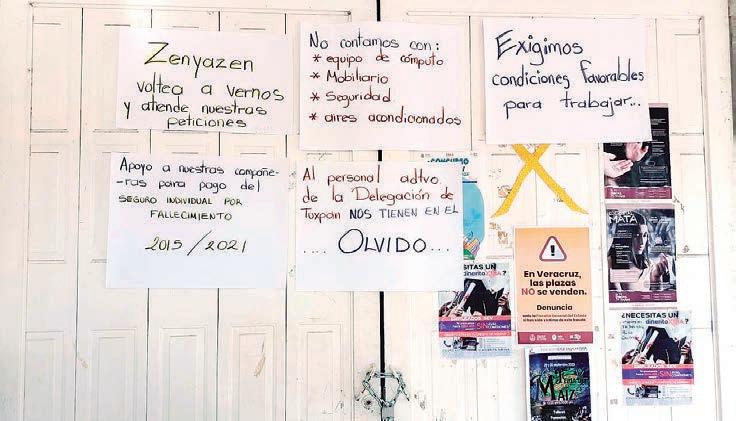 Zenyazen
voltea a vernos
y atiende nuestras
peticiones
No contamos con:
* equipo de cómputo
* Mobiliario
* Seguridad
* aires acondicionados
Exigimos
condiciones favorables
para trabajar...
Apoyo a nuestras compañe-
-ras para pago del
SEGURO INDIVIDUAL POR
FALLECIMIENTO
2015/2021
Al personal adtvo
de la Delegación de
Tuxpan NOS TIENEN EN EL
.... OLVIDO...
En Veracruz,
las plazas
NO se venden.
Denuncia
MATA
¿NECESITAS UN
dinerito
SIN
¿NECESITAS UN
dinerito
SIN